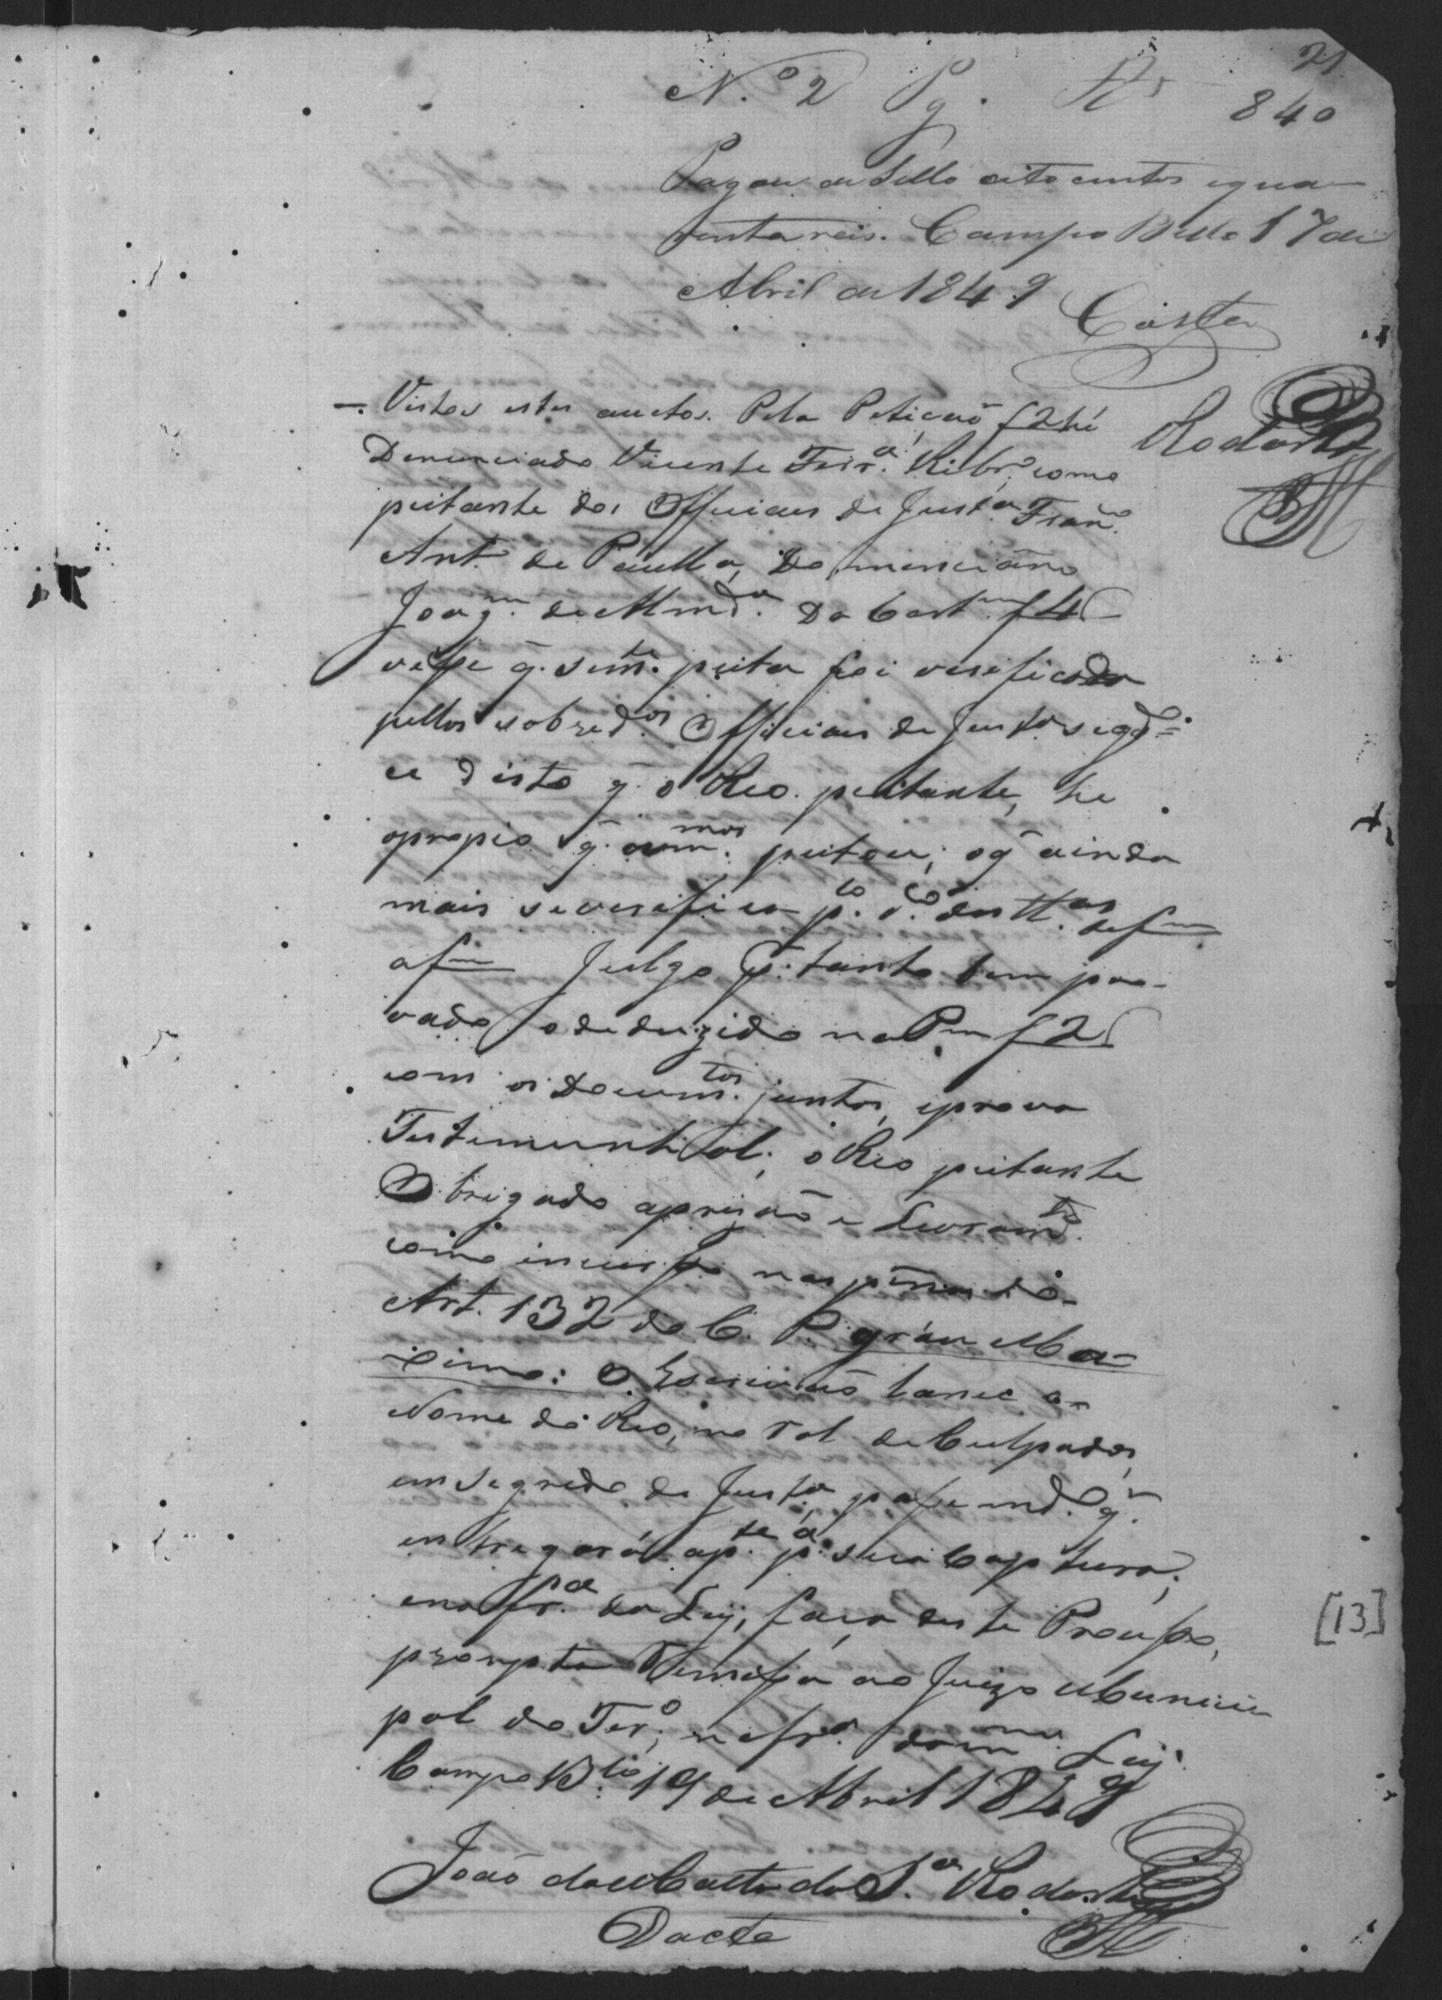 21
N.º 2 Pg. Rs 840
Pagou de Sello oito centos e qua
renta reis. Campo Bello 17 de
Abril de 1849
Costa
Vistos estes auctos. Pela Peticaõ f 2 hé
Denunciado Vicente Ferr.ª Ribr.º como
peitante dos Officiaes de Just.ª Fran.co
Ant.º de Paulla, e
Joaq.m de Mird.ª Da Cert.m f 4
vese q. sem.te peita foi verificada
pellos sobred.os Officiaes de Just.ª segd.º
e disto q. o Reo peitante, he
o propio q. os m.mos peitou; o q ainda
mais severefica p.lo d.º das tt.as de f
a f Julgo p.r tanto bem pro-
vado o deduzido na P.m f 2
com os Docum.tos juntos, e prova
Testimunhal; o Reo peitante
Obrigado aprizaõ e Livram.to
como incurso nas penas do
Art. 132 do C. P. gráu Ma-
ximo: O Escrivaõ lance o
Nome do Reo, no rol de Culpados,
em segredo de Just.ª, passe md.º q.
entregará a p.te p.ª sua Captura;
e na fr.ª da Ley, faça deste Processo,
prompta Remessa ao Juizo Munici
pal do Ter.º, na fr.ª da m.ma Ley.
Campo B.lo 19 de Abril 1849
João da Matta da S.ª Rodarte
Dacta
Rodarte
[13]